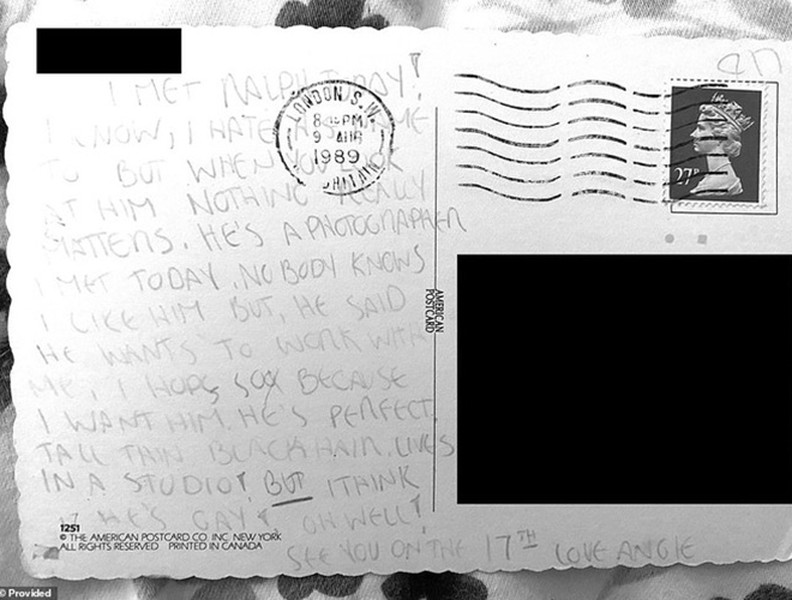 I MET RALPH TODAY!
I KNOW, I HATE ME
TO BUT WHEN YOU LOOK
AT HIM NOTHING REALLY
MATTERS. HE'S A PHOTOGRAPHER
I MET TODAY. NOBODY KNOWS
I LIKE HIM BUT, HE SAID
HE WANTS TO WORK WITH
ME, I HOPE SO BECAUSE
I WANT HIM. HE'S PERFECT.
TALL THIN BLACK HAIR. LIVES
IN A STUDIO! BUT I THINK
HE'S GAY! OH WELL!
SEE YOU ON THE 17TH LOVE ANGIE
1251
© THE AMERICAN POSTCARD CO. INC. NEW YORK
ALL RIGHTS RESERVED PRINTED IN CANADA
LONDON S.W.
PM
9 AUG
1989
BRITAIN
AMERICAN
POSTCARD
27P
© Provided